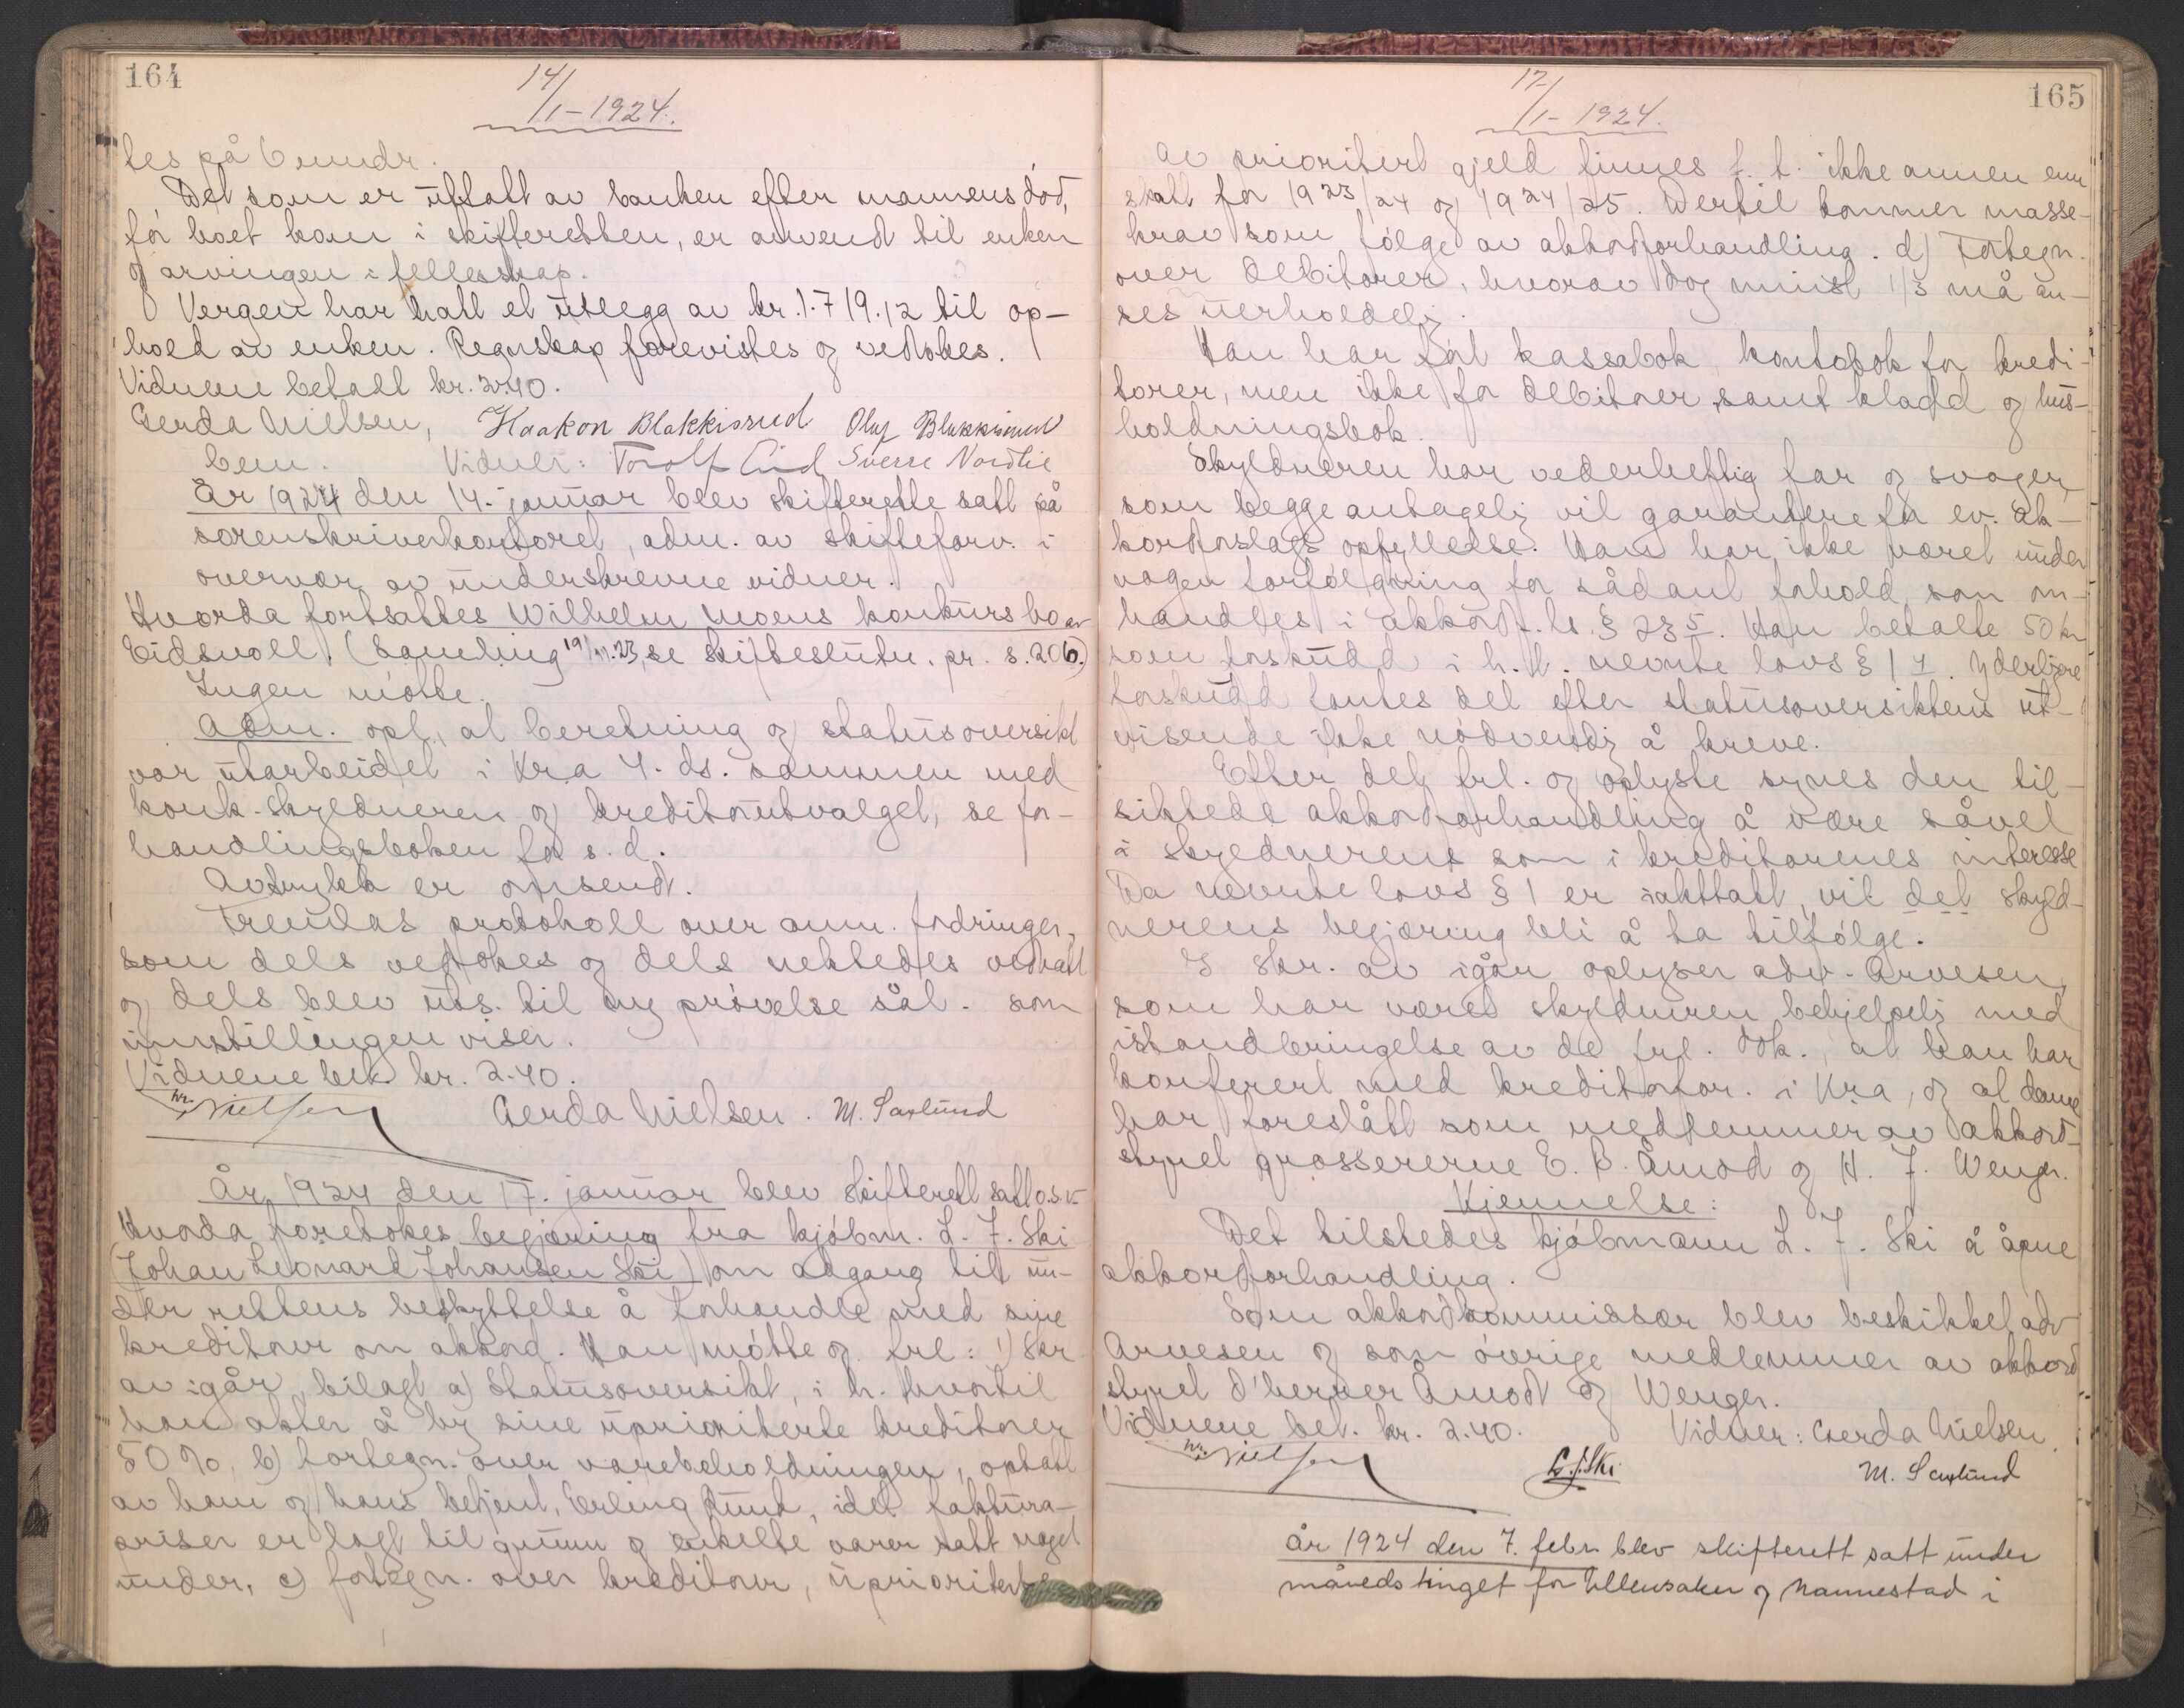 164
14/1-1924.
tes på
Det som er uttatt av banken efter mannens død,
før boet kom i skifteretten, er anvend til enken
og arvingen i fellesskap.
Vergen har hatt et utlegg av kr. 1.719.12 til op-
hold av enken. Regnskap forevistes og vedtokes.
Vidnene betalt kr. 2.40.
Gerda Nielsen, Haakon Blakkisrud Oluf Blakkisrud
bem. Vidner: Torolf Lind Sverre Nordlie
År 1924 den 14. januar blev skifterette satt på
sorenskriverkontoret, adm. av skifteforv. i
overvær av underskrevne vidner.
Hvorda fortsattes Wilhelm Moens konkursbo av
Eidsvoll. (Samling 19/11.23, se skiftesluttn. pr. s. 206.)
Ingen møtte.
Adm. opl., at beretning og statusoversikt
var utarbeidet i Kr.a 4. ds. sammen med
konk-skyldneren og kreditorutvalget, se for-
handlingsboken for s. d.
Avtrykk er omsendt.
Fremlas protokoll over anm. fordringer,
som dels vedtokes og dels nektedes vedtatt
og dels blev uts. til ny prøvelse sål. som
innstillingen viser.
Vidnene bet. kr. 2.40.
hr. Nielsen Gerda Nielsen. M. Saxlund
År 1924 den 17. januar blev skifterett satt o.s.v.
Hvorda foretokes begjæring fra kjøbm. L. J. Ski
(Johan Leonard Johansen Ski) om adgang til un-
der rettens beskyttelse å forhandle med sine
kreditorer om akkord. Han møtte og frl: 1) Skr.
av igår, bilagt a) Statusoversikt, i h. hvortil
han akter å by sine uprioriterte kreditorer
50%, b) fortegn. over varebeholdningen, optatt
av ham og hans betjent, Erling Ruud, idet faktura-
priser er lagt til grunn og enkelte varer satt noget
under, c) fortegn. over kreditorer, uprioriterte
165
17/1-1924.
Av prioritert gjeld finnes f. t. ikke annen enn
skatt for 1923/24 og 1924/25. Dertil kommer masse-
krav som følge av akkordforhandling. d) Fortegn.
over debitorer, hvorav dog minst 1/3 må an-
ses uerholdelig.
Han har ført kassabok, kontobok for kredi-
torer, men ikke for debitorer, samt kladd og hus-
holdningsbok.
Skyldneren har vederheftig far og svoger,
som begge antagelig vil garantere for ev. Ak-
kordforslags opfyllelse. Han har ikke været under
nogen forfølgning for sådant forhold, som om-
handles i Akkord.-ls. § 23 5. Han betalte 50 kr
som forskudd i h. t. nevnte lovs § 1 1. Yderligere
forskudd fantes det efter statusoversiktens ut-
visende ikke nødvendig å kreve.
Efter det frl. og oplyste synes den til-
siktede akkordforhandling å være såvel
i skyldnerens som i kreditorenes interesse
Da nevnte lovs § 1 er iakttatt, vil det skyld-
nerens begjæring bli å ta tilfølge.
I skr. av igår oplyser adv. Arvesen,
som har været skyldneren behjelpelig med
istandbringelse av de frl. dok., at han har
konferert med kreditorfor. i Kr.a, og at denne
har foreslått som medlemmer av akkord-
styret grossererne E. B. Åmod og H. J. Wenger.
Kjennelse:
Det tilstedes kjøbmann L. J. Ski å åpne
akkordforhandling.
Som akkordkommissær blev beskikket adv
Arvesen og som øvrige medlemmer av akkord
styret d'herrer Åmodt og Wenger.
Vidnene bet. kr. 2.40. Vidner: Gerda Nielsen.
hr. Nielsen L. J. Ski M. Saxlund
År 1924 den 7. febr. blev skifterett satt under
månedstinget for Ullensaker og Nannestad i